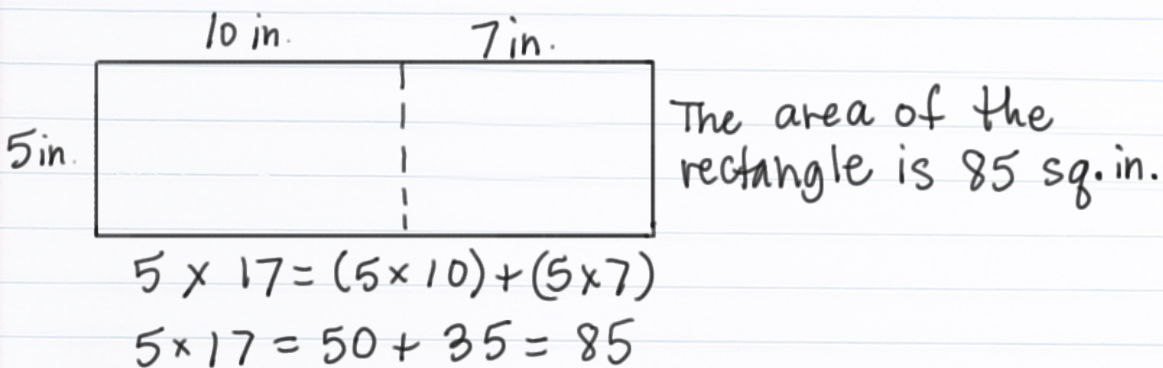 10 in.
7 in.
5 in.
The area of the
rectangle is 85 sq. in.
5 × 17 = (5 × 10) + (5 × 7)
5 × 17 = 50 + 35 = 85